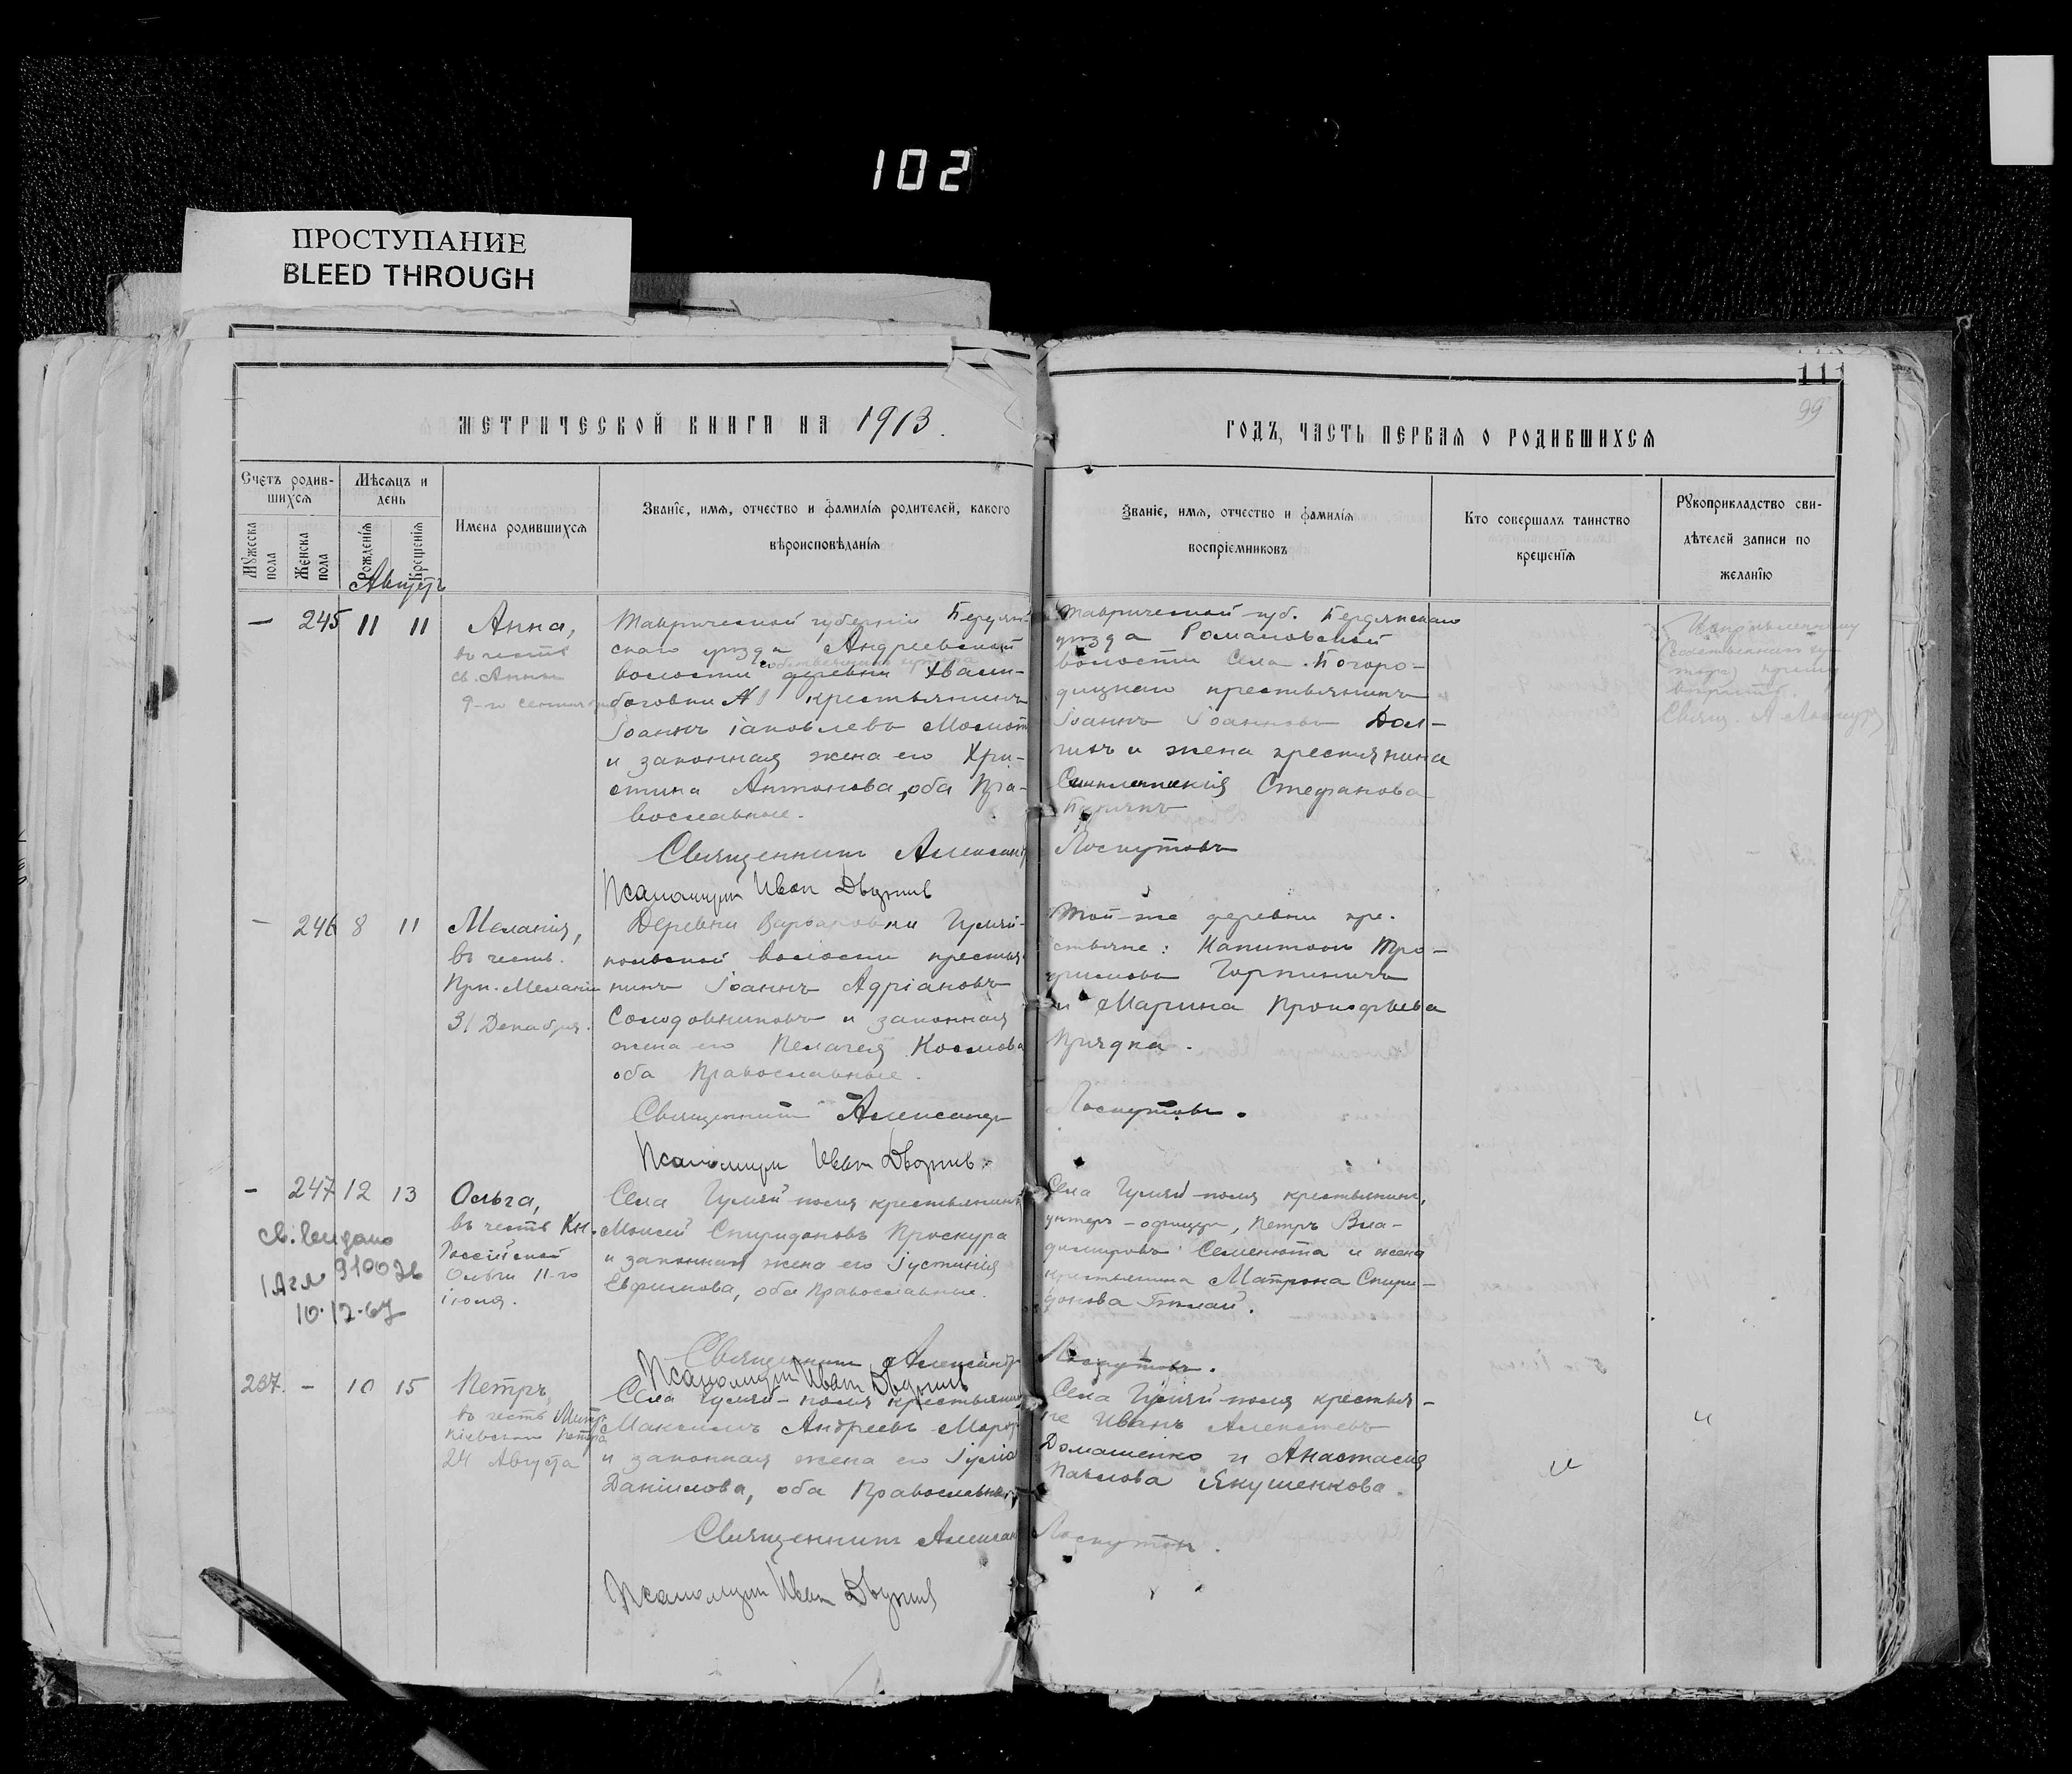 102
ПРОСТУПАНИЕ
BLEED THROUGH
111
99
МЕТРИЧЕСКОЙ КНИГИ НА 1913.
ГОДЪ, ЧАСТЬ ПЕРВАЯ О РОДИВШИХСЯ
Счетъ родив-
шихся
Мужеска пола
Женска пола
Мѣсяцъ и
день
Рожденія
Крещенія
Имена родившихся
Званіе, имя, отчество и фамилія родителей, какого
вѣроисповѣданія
Званіе, имя, отчество и фамилія
воспріемниковъ
Кто совершалъ таинство
крещенія
Рукоприкладство сви-
дѣтелей записи по
желанію
Августъ
— 245 11 11
Анна,
въ честь
св. Анны
9-го
Таврической губерніи Бердян-
скаго уѣзда Андреевской
собственнаго хутора
волости деревни
№1 крестьянинъ
Іоаннъ Іаковлевъ
и законная жена его Хри-
стина Антонова, оба Пра-
вославные.
Таврической губ. Бердянскаго
уѣзда Романовской
волости села Богоро-
дицкаго крестьянинъ
Іоаннъ Іоанновъ
и жена крестьянина
Стефанова
Священникъ Александръ Лоскутовъ
Псаломщик Иван
— 246 8 11
Меланія,
въ честь
Прп. Меланіи
31 Декабря.
Деревни Варваровки Гуляй-
польской волости крестья-
нинъ Іоаннъ Адріановъ
Солодовниковъ и законная
жена его Пелагея Космова
оба Православные.
Той-же деревни кре-
стьяне: Капитонъ Тро-
фимовъ Горпиничъ
и Марина Прокофьева
Прядка.
Священникъ Александръ Лоскутовъ.
Псаломщик Иван
— 247 12 13
Ольга,
въ честь Кн.
Россійской
Ольги 11-го
іюля.
10.12.67
Села Гуляй-поля крестьянинъ
Моисей Спиридоновъ Проскура
и законная жена его Іустинія
Ефимова, оба Православные.
Села Гуляй-поля крестьянинъ,
унтеръ-офицеръ, Петръ Вла-
димировъ Семенюта и жена
крестьянина Матрона Спири-
донова
Священникъ Александръ Лоскутовъ.
Псаломщик Иван
237. — 10 15
Петръ,
въ честь Митр.
Кіевскаго Петра
24 Августа
Села Гуляй-поля крестьянинъ
Максимъ Андреевъ
и законная жена его Іулія
Даніилова, оба Православные
Села Гуляй-поля крестья-
не Иванъ Алексѣевъ
Домашенко и Анастасія
Павлова Якушенкова.
Священникъ Александръ Лоскутовъ.
Псаломщик Иван